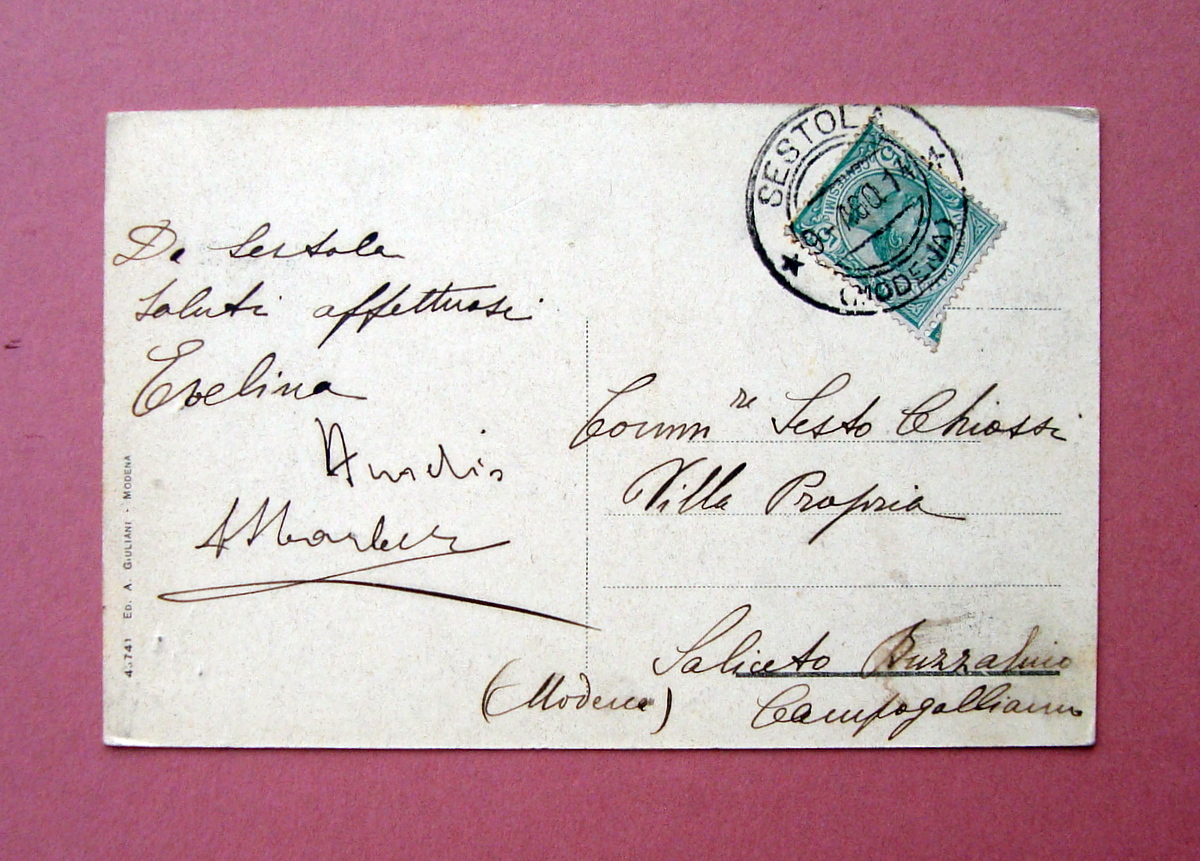 Da Sestola
Saluti affettuosi
Evelina
SESTOLA
(MODENA)
Comm re Sesto Chiossi
Villa Propria
Saliceto Buzzalino
Campogalliano
(Modena)
ED. A. GIULIANI - MODENA